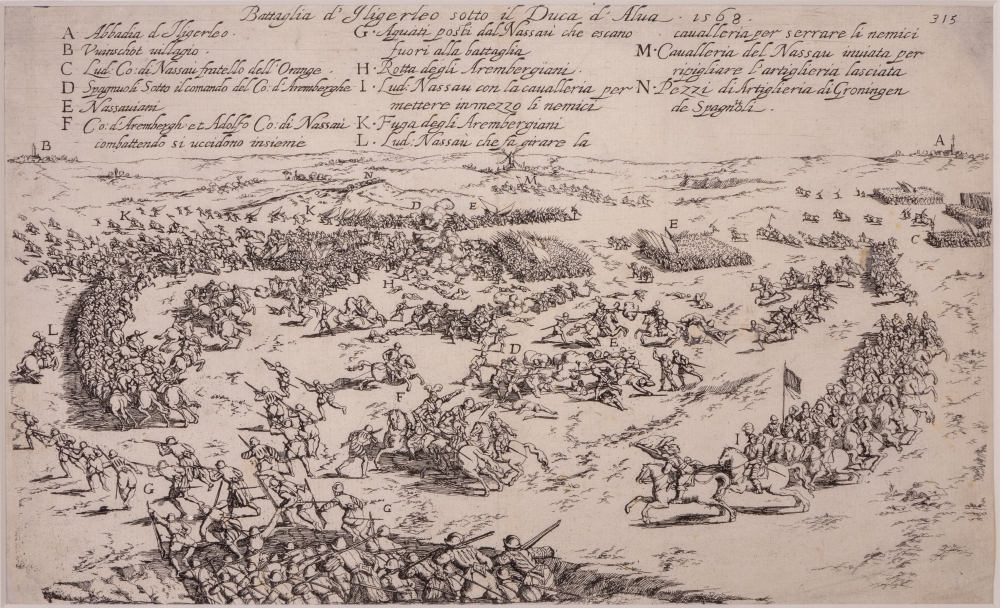 Battaglia d'Iligerleo sotto il Duca d'Alua. 1568.
315
A Abbadia d'Iligerleo.
B Vuinschot uillagio.
C Lud: Co: di Nassau fratello dell'Orange.
D Spagnuoli Sotto il comando del Co: d'Aremberghe
E Nassauiani
F Co: d'Arembergh et Adolfo Co: di Nassau
combattendo si uccidono insieme
G· Aguati posti dal Nassau che escano
fuori alla battaglia
H· Rotta degli Arembergiani.
I· Lud: Nassau con la caualleria per
mettere in mezzo li nemici
K· Fuga degli Arembergiani
L· Lud: Nassau che fa girare la
caualleria per serrare li nemici
M· Caualleria del Nassau inuiata per
ripigliare l'artiglieria lasciata
N· Pezzi di Artiglieria di Groningen
de Spagnoli.
B
A
N
M
K
K
D
E
E
C
H
L
D
E
F
I
G
G